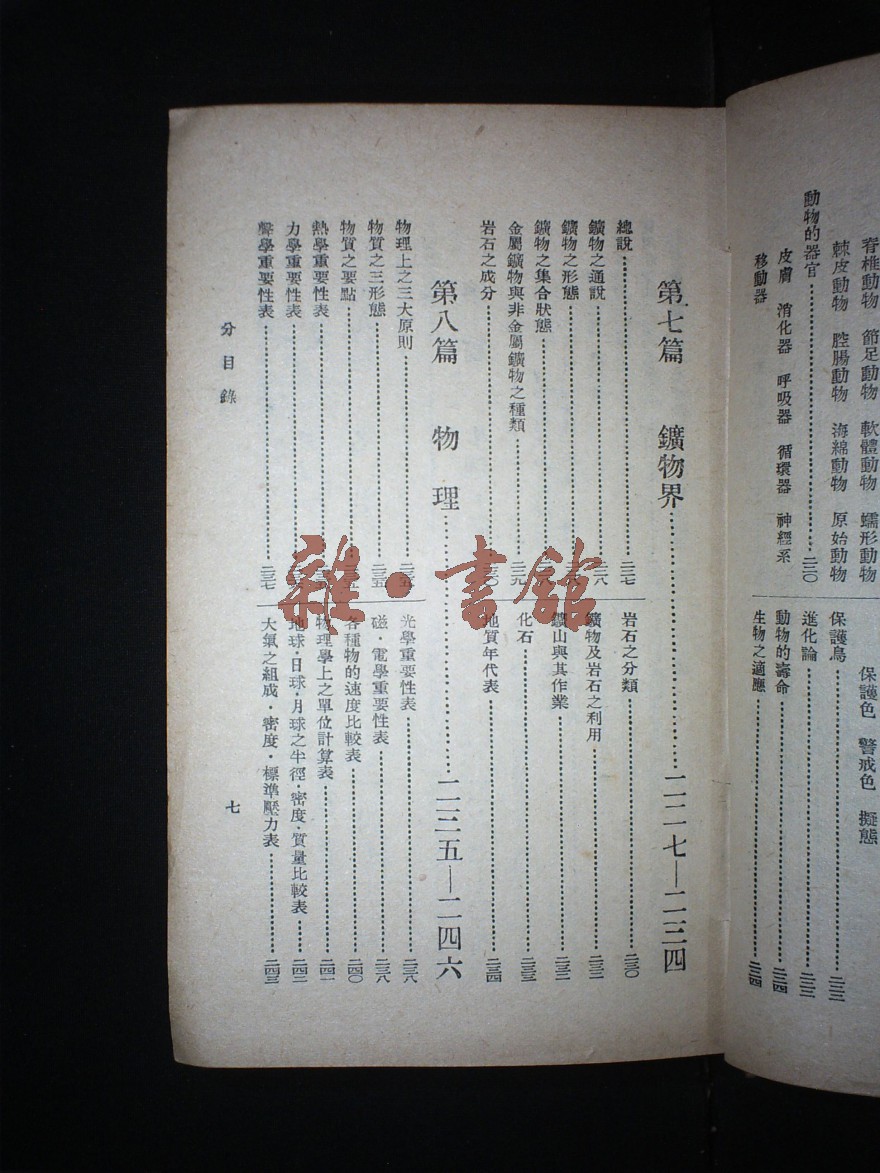 脊椎動物 節足動物 軟體動物 蠕形動物
棘皮動物 腔腸動物 海綿動物 原始動物
動物的器官……二二〇
皮膚 消化器 呼吸器 循環器 神經系
移動器
保護色 警戒色 擬態
保護鳥……
進化論……
動物的壽命……二二四
生物之適應……二二四
第七篇 鑛物界……二二七—二三四
總說……二二七
鑛物之通說……二二八
鑛物之形態……
鑛物之集合狀態……
金屬鑛物與非金屬鑛物之種類……二二九
岩石之成分……二三〇
岩石之分類……二三〇
鑛物及岩石之利用……
鑛山與其作業……二三二
化石……二三三
地質年代表……二三四
第八篇 物理……二三五—二四六
物理上之三大原則……二三五
物質之三形態……二三五
物質之要點……二三五
熱學重要性表……
力學重要性表……
聲學重要性表……二三七
光學重要性表……二三八
磁·電學重要性表……二三八
各種物的速度比較表……二四〇
物理學上之單位計算表……二四一
地球·日球·月球之半徑·密度·質量比較表……二四二
大氣之組成·密度·標準壓力表……二四三
分目錄
七
雜·書館